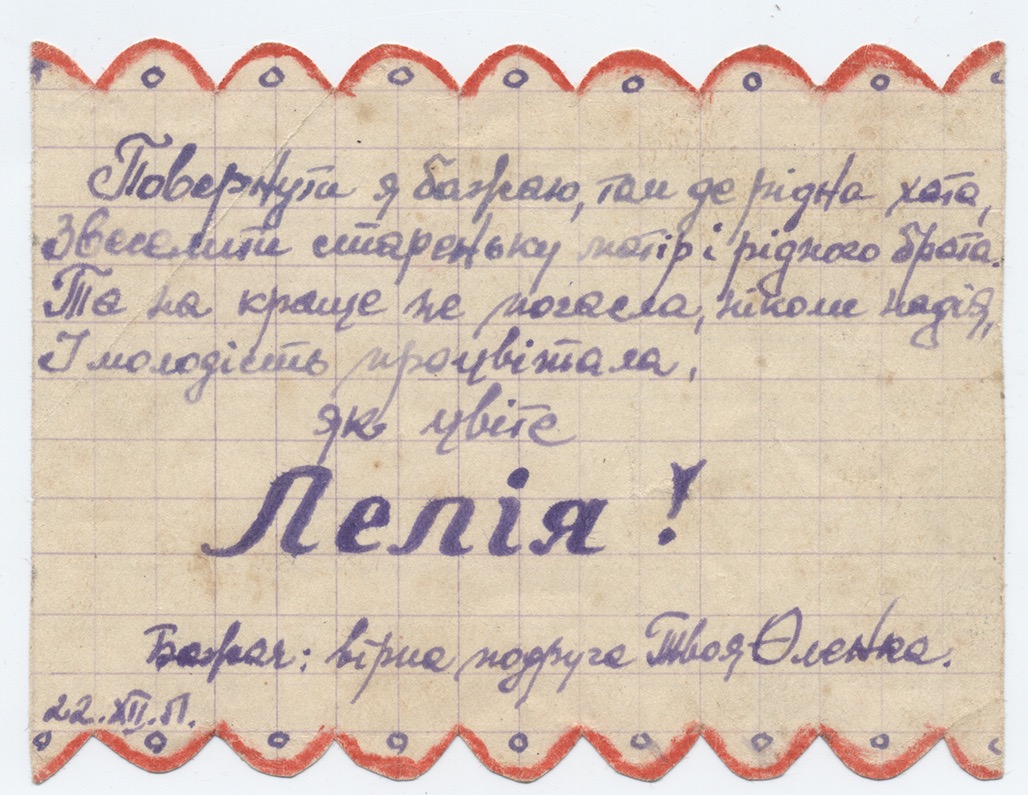 Повернути я бажаю, там де рідна хата,
Звеселити стареньку матір і рідного брата.
Та на краще не погасла, ніколи надія,
І молодість процвітала,
як цвіте
Лелія!
Бажає: вірна подруга Твоя Оленка.
22.XII.51.